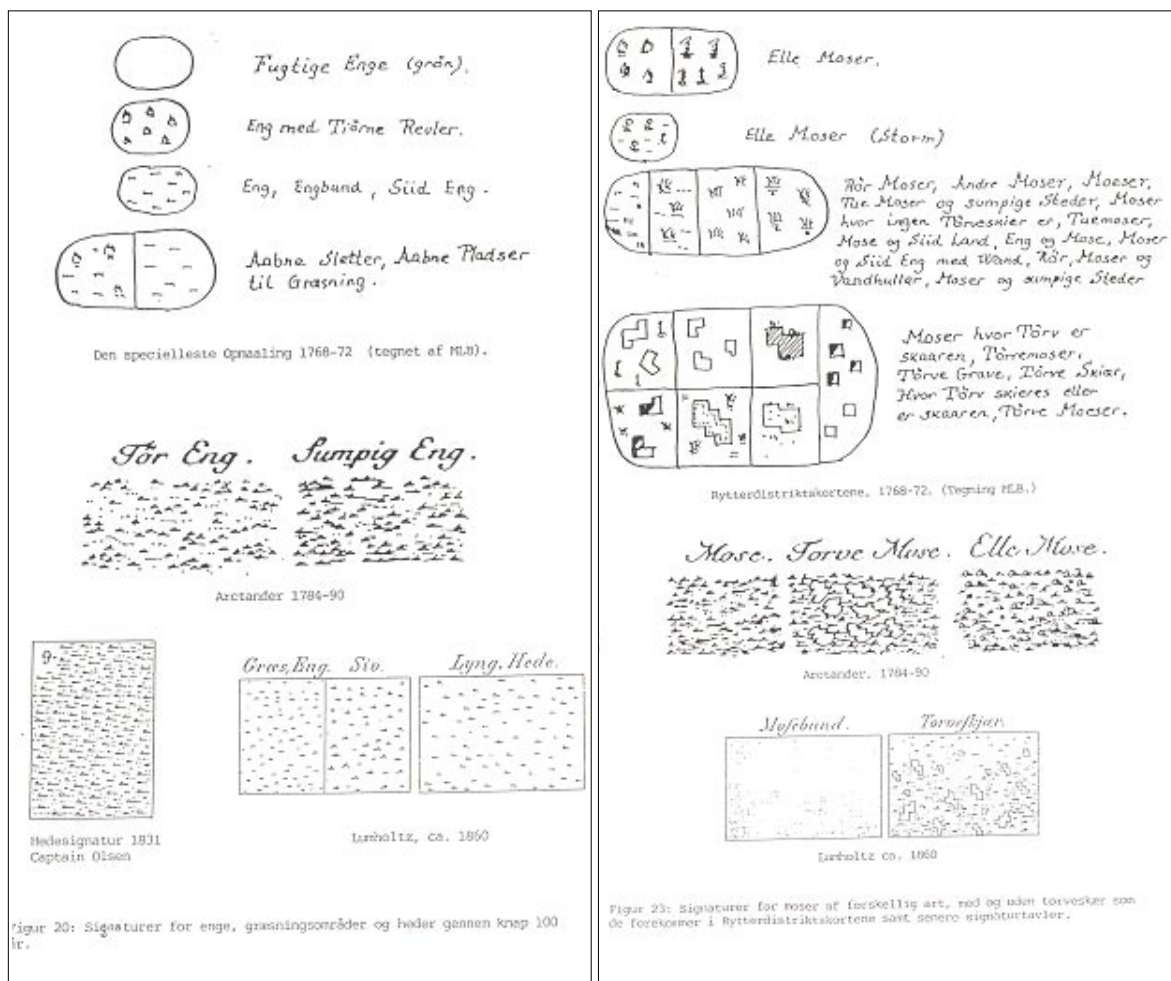 Fugtige Enge (grön).
Eng med Tiörne Revler.
Eng, Engbund, Siid Eng.
Aabne Sletter, Aabne Pladser
til Græsning.
Den specielleste Opmaaling 1768-72 (tegnet af MLB).
Tör Eng. Sumpig Eng.
Arctander 1784-90
g.
Græs, Eng. Siv. Lyng, Hede.
Hedesignatur 1831
Captain Olsen
Lumholtz, ca. 1860
Figur 20: Signaturer for enge, græsningsområder og heder gennem knap 100
år.
Elle Moser.
Elle Moser (Storm)
Rör Moser, Andre Moser, Moeser,
Tue Moser og sumpige Steder, Moser
hvor ingen Törveskier er, Tuemoser,
Mose og Siid Land, Eng og Mose, Moser
og Siid Eng med Wand, Rör, Moser og
Vandhuller, Moser og sumpige Steder
Moser hvor Törv er
skaaren, Törremoser,
Törve Grave, Törve Skiær,
Hvor Törv skieres eller
er skaaren, Törve Moeser.
Rytterdistriktskortene, 1768-72. (Tegning MLB.)
Mose. Torve Mose. Elle Mose.
Arctander, 1784-90
Mosebund. Torveskjær.
Lumholtz ca. 1860
Figur 23: Signaturer for moser af forskellig art, med og uden torveskær som
de forekommer i Rytterdistriktskortene samt senere signaturtavler.